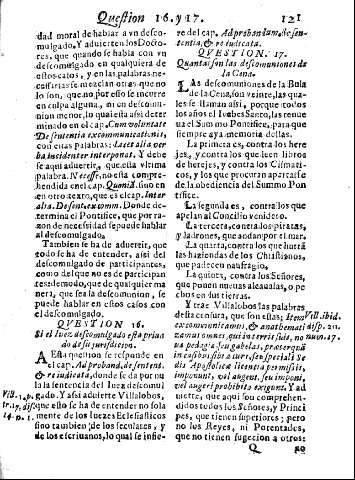 Question 16. y 17. 121
dad moral de hablar a vn desco-
mulgado. Y aduierten los Docto-
res, que quando se habla con vn
descomulgado en qualquiera de
estos casos, y en las palabras ne-
cessarias se mezclan otras que no
lo son, que no por esso se incurre
en culpa alguna, ni en descomu-
nion menor, lo qual està assi deter
minado en el cap. Cum voluntate
De sententia excommunicationis,
con estas palabras: Licet alia ver
ba incidenter interponat. Y debe
se aqui aduertir, que esta vltima
palabra. Necesse, no està compre-
hendida en el cap. Quoniā. sino en
en otro texto, que es el cap. Inter
alia. De sent. excom. Donde de-
termina el Pontifice, que por ra-
zon de necessidad se puede hablar
al descomulgado.
Tambien se ha de aduertir, que
todo se ha de entender, assi del
descomulgado de participantes,
como del que no es de participan
tes: de modo, que de qualquier ma
nera, que sea la descomunion, se
puede hablar en estos casos con
el descomulgado.
QVESTION 16.
Si el Iuez descomulgado està priua
do de su jurisdicion.
A Esta question se responde en
el cap. Ad probandā, de sentent.
& re iudicata, donde se da por nu
la la sentencia del Iuez descomul
gado. Y assi aduierte Villalobos,
que esto se ha de entender no sola
mente de los Iuezes Eclesiasticos
sino tambien de los seculares, y
de los escriuanos, lo qual se infie-
Vill. 1. p.
tr. 17. dif.
14. p. 1.
re del cap. Ad probandam, de sen-
tentia, & re iudicata.
QVESTION. 17.
Quantas son las descomuniones de
la Cena.
LAs descomuniones de la Bula
de la Cena, son veinte, las qua-
les se llaman assi, porque todos
los años el Iuebes Santo, las renue
ua el Sumo Pontifice, para que
siempre aya memoria dellas.
La primera es, contra los here
jes, y contra los que leen libros
de herejes, y contra los Cismati-
cos, y los que procuran apartarse
de la obediencia del Summo Pon
tifice.
La segunda es, contra los que
apelan al Concilio venidero.
La tercera, contra los piratas,
y ladrones, que andan por el mar.
La quarta, contra los que hurtā
las haziendas de los Christianos,
que padecen naufragio.
La quinta, contra los Señores,
que ponen nueuas alcaualas, o pe
chos en sus tierras.
Y trae Villalobos las palabras
desta censura, que son estas; Item
excommunicamus, & anathemati
zamus omnes, qui in terris suis, no
ua pedagia, seu gabelas, præterquā
in casibus sibi a iure, seu speciali Se
dis Apostolica licentia permissis,
imponunt, vel augent, seu imponi,
vel augeri prohibita exigunt. Y ad
uierte, que aqui son comprehen-
didos todos los Señores, y Princi
pes, que tienen superiores; pero
no los Reyes, ni Potentados,
que no tienen sugecion a otros:
Vill. ibid.
disp. 20.
num. 17.
Q no